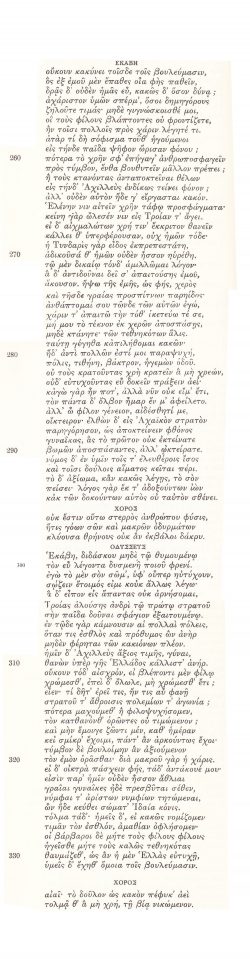 ΕΚΑΒΗ
οὔκουν κακύνει τοῖσδε τοῖς βουλεύμασιν,
ὃς ἐξ ἐμοῦ μὲν ἔπαθες οἷα φῂς παθεῖν,
δρᾷς δ' οὐδὲν ἡμᾶς εὖ, κακῶς δ' ὅσον δύνᾳ;
ἀχάριστον ὑμῶν σπέρμ', ὅσοι δημηγόρους
ζηλοῦτε τιμάς· μηδὲ γιγνώσκοισθέ μοι,
οἳ τοὺς φίλους βλάπτοντες οὐ φροντίζετε,
ἢν τοῖσι πολλοῖς πρὸς χάριν λέγητέ τι.
ἀτὰρ τί δὴ σόφισμα τοῦθ' ἡγούμενοι
εἰς τήνδε παῖδα ψῆφον ὥρισαν φόνου;
260 πότερα τὸ χρῆν σφ' ἐπήγαγ' ἀνθρωποσφαγεῖν
πρὸς τύμβον, ἔνθα βουθυτεῖν μᾶλλον πρέπει;
ἢ τοὺς κτανόντας ἀνταποκτεῖναι θέλων
εἰς τήνδ' Ἀχιλλεὺς ἐνδίκως τείνει φόνον;
ἀλλ' οὐδὲν αὐτὸν ἥδε γ' εἴργασται κακόν.
Ἑλένην νιν αἰτεῖν χρῆν τάφῳ προσφάγματα·
κείνη γὰρ ὤλεσέν νιν εἰς Τροίαν τ' ἄγει.
εἰ δ' αἰχμαλώτων χρή τιν' ἔκκριτον θανεῖν
κάλλει θ' ὑπερφέρουσαν, οὐχ ἡμῶν τόδε·
ἡ Τυνδαρὶς γὰρ εἶδος ἐκπρεπεστάτη,
270 ἀδικοῦσά θ' ἡμῶν οὐδὲν ἧσσον ηὑρέθη.
τῷ μὲν δικαίῳ τόνδ' ἁμιλλῶμαι λόγον·
ἃ δ' ἀντιδοῦναι δεῖ σ' ἀπαιτούσης ἐμοῦ,
ἄκουσον. ἥψω τῆς ἐμῆς, ὡς φῄς, χερὸς
καὶ τῆσδε γραίας προσπίτνων παρηίδος·
ἀνθάπτομαί σου τῶνδε τῶν αὐτῶν ἐγώ,
χάριν τ' ἀπαιτῶ τὴν τόθ' ἱκετεύω τέ σε,
μή μου τὸ τέκνον ἐκ χερῶν ἀποσπάσῃς,
μηδὲ κτάνητε· τῶν τεθνηκότων ἅλις.
ταύτῃ γέγηθα κἀπιλήθομαι κακῶν·
280 ἥδ' ἀντὶ πολλῶν ἐστί μοι παραψυχή,
πόλις, τιθήνη, βάκτρον, ἡγεμὼν ὁδοῦ.
οὐ τοὺς κρατοῦντας χρὴ κρατεῖν ἃ μὴ χρεών,
οὐδ' εὐτυχοῦντας εὖ δοκεῖν πράξειν ἀεί·
κἀγὼ γὰρ ἦν ποτ', ἀλλὰ νῦν οὐκ εἴμ' ἔτι,
τὸν πάντα δ' ὄλβον ἦμαρ ἕν μ' ἀφείλετο.
ἀλλ', ὦ φίλον γένειον, αἰδέσθητί με,
οἴκτειρον· ἐλθὼν δ' εἰς Ἀχαιικὸν στρατὸν
παρηγόρησον, ὡς ἀποκτείνειν φθόνος
γυναῖκας, ἃς τὸ πρῶτον οὐκ ἐκτείνατε
290 βωμῶν ἀποσπάσαντες, ἀλλ' ᾠκτείρατε.
νόμος δ' ἐν ὑμῖν τοῖς τ' ἐλευθέροις ἴσος
καὶ τοῖσι δούλοις αἵματος κεῖται πέρι.
τὸ δ' ἀξίωμα, κἂν κακῶς λέγῃς, τὸ σὸν
πείσει· λόγος γὰρ ἔκ τ' ἀδοξούντων ἰὼν
κἀκ τῶν δοκούντων αὑτὸς οὐ ταὐτὸν σθένει.
ΧΟΡΟΣ
οὐκ ἔστιν οὕτω στερρὸς ἀνθρώπου φύσις,
ἥτις γόων σῶν καὶ μακρῶν ὀδυρμάτων
κλύουσα θρήνους οὐκ ἂν ἐκβάλοι δάκρυ.
ΟΔΥΣΣΕΥΣ
Ἑκάβη, διδάσκου μηδὲ τῷ θυμουμένῳ
300 τὸν εὖ λέγοντα δυσμενῆ ποιοῦ φρενί.
ἐγὼ τὸ μὲν σὸν σῶμ', ὑφ' οὗπερ ηὐτύχουν,
σῴζειν ἕτοιμός εἰμι κοὐκ ἄλλως λέγω·
ἃ δ' εἶπον εἰς ἅπαντας οὐκ ἀρνήσομαι,
Τροίας ἁλούσης ἀνδρὶ τῷ πρώτῳ στρατοῦ
σὴν παῖδα δοῦναι σφάγιον ἐξαιτουμένῳ.
ἐν τῷδε γὰρ κάμνουσιν αἱ πολλαὶ πόλεις,
ὅταν τις ἐσθλὸς καὶ πρόθυμος ὢν ἀνὴρ
μηδὲν φέρηται τῶν κακιόνων πλέον.
ἡμῖν δ' Ἀχιλλεὺς ἄξιος τιμῆς, γύναι,
310 θανὼν ὑπὲρ γῆς Ἑλλάδος κάλλιστ' ἀνήρ.
οὔκουν τόδ' αἰσχρόν, εἰ βλέποντι μὲν φίλῳ
χρώμεσθ', ἐπεὶ δ' ὄλωλε, μὴ χρώμεσθ' ἔτι;
εἶεν· τί δῆτ' ἐρεῖ τις, ἤν τις αὖ φανῇ
στρατοῦ τ' ἄθροισις πολεμίων τ' ἀγωνία;
πότερα μαχούμεθ' ἢ φιλοψυχήσομεν,
τὸν κατθανόνθ' ὁρῶντες οὐ τιμώμενον;
καὶ μὴν ἔμοιγε ζῶντι μέν, καθ' ἡμέραν
κεἰ σμίκρ' ἔχοιμι, πάντ' ἂν ἀρκούντως ἔχοι·
τύμβον δὲ βουλοίμην ἂν ἀξιούμενον
320 τὸν ἐμὸν ὁρᾶσθαι· διὰ μακροῦ γὰρ ἡ χάρις.
εἰ δ' οἰκτρὰ πάσχειν φῄς, τάδ' ἀντάκουέ μου·
εἰσὶν παρ' ἡμῖν οὐδὲν ἧσσον ἄθλιαι
γραῖαι γυναῖκες ἠδὲ πρεσβῦται σέθεν,
νύμφαι τ' ἀρίστων νυμφίων τητώμεναι,
ὧν ἥδε κεύθει σώματ' Ἰδαία κόνις.
τόλμα τάδ'· ἡμεῖς δ', εἰ κακῶς νομίζομεν
τιμᾶν τὸν ἐσθλόν, ἀμαθίαν ὀφλήσομεν·
οἱ βάρβαροι δὲ μήτε τοὺς φίλους φίλους
ἡγεῖσθε μήτε τοὺς καλῶς τεθνηκότας
330 θαυμάζεθ', ὡς ἂν ἡ μὲν Ἑλλὰς εὐτυχῇ,
ὑμεῖς δ' ἔχηθ' ὅμοια τοῖς βουλεύμασιν.
ΧΟΡΟΣ
αἰαῖ· τὸ δοῦλον ὡς κακὸν πέφυκ' ἀεὶ
τολμᾷ θ' ἃ μὴ χρή, τῇ βίᾳ νικώμενον.